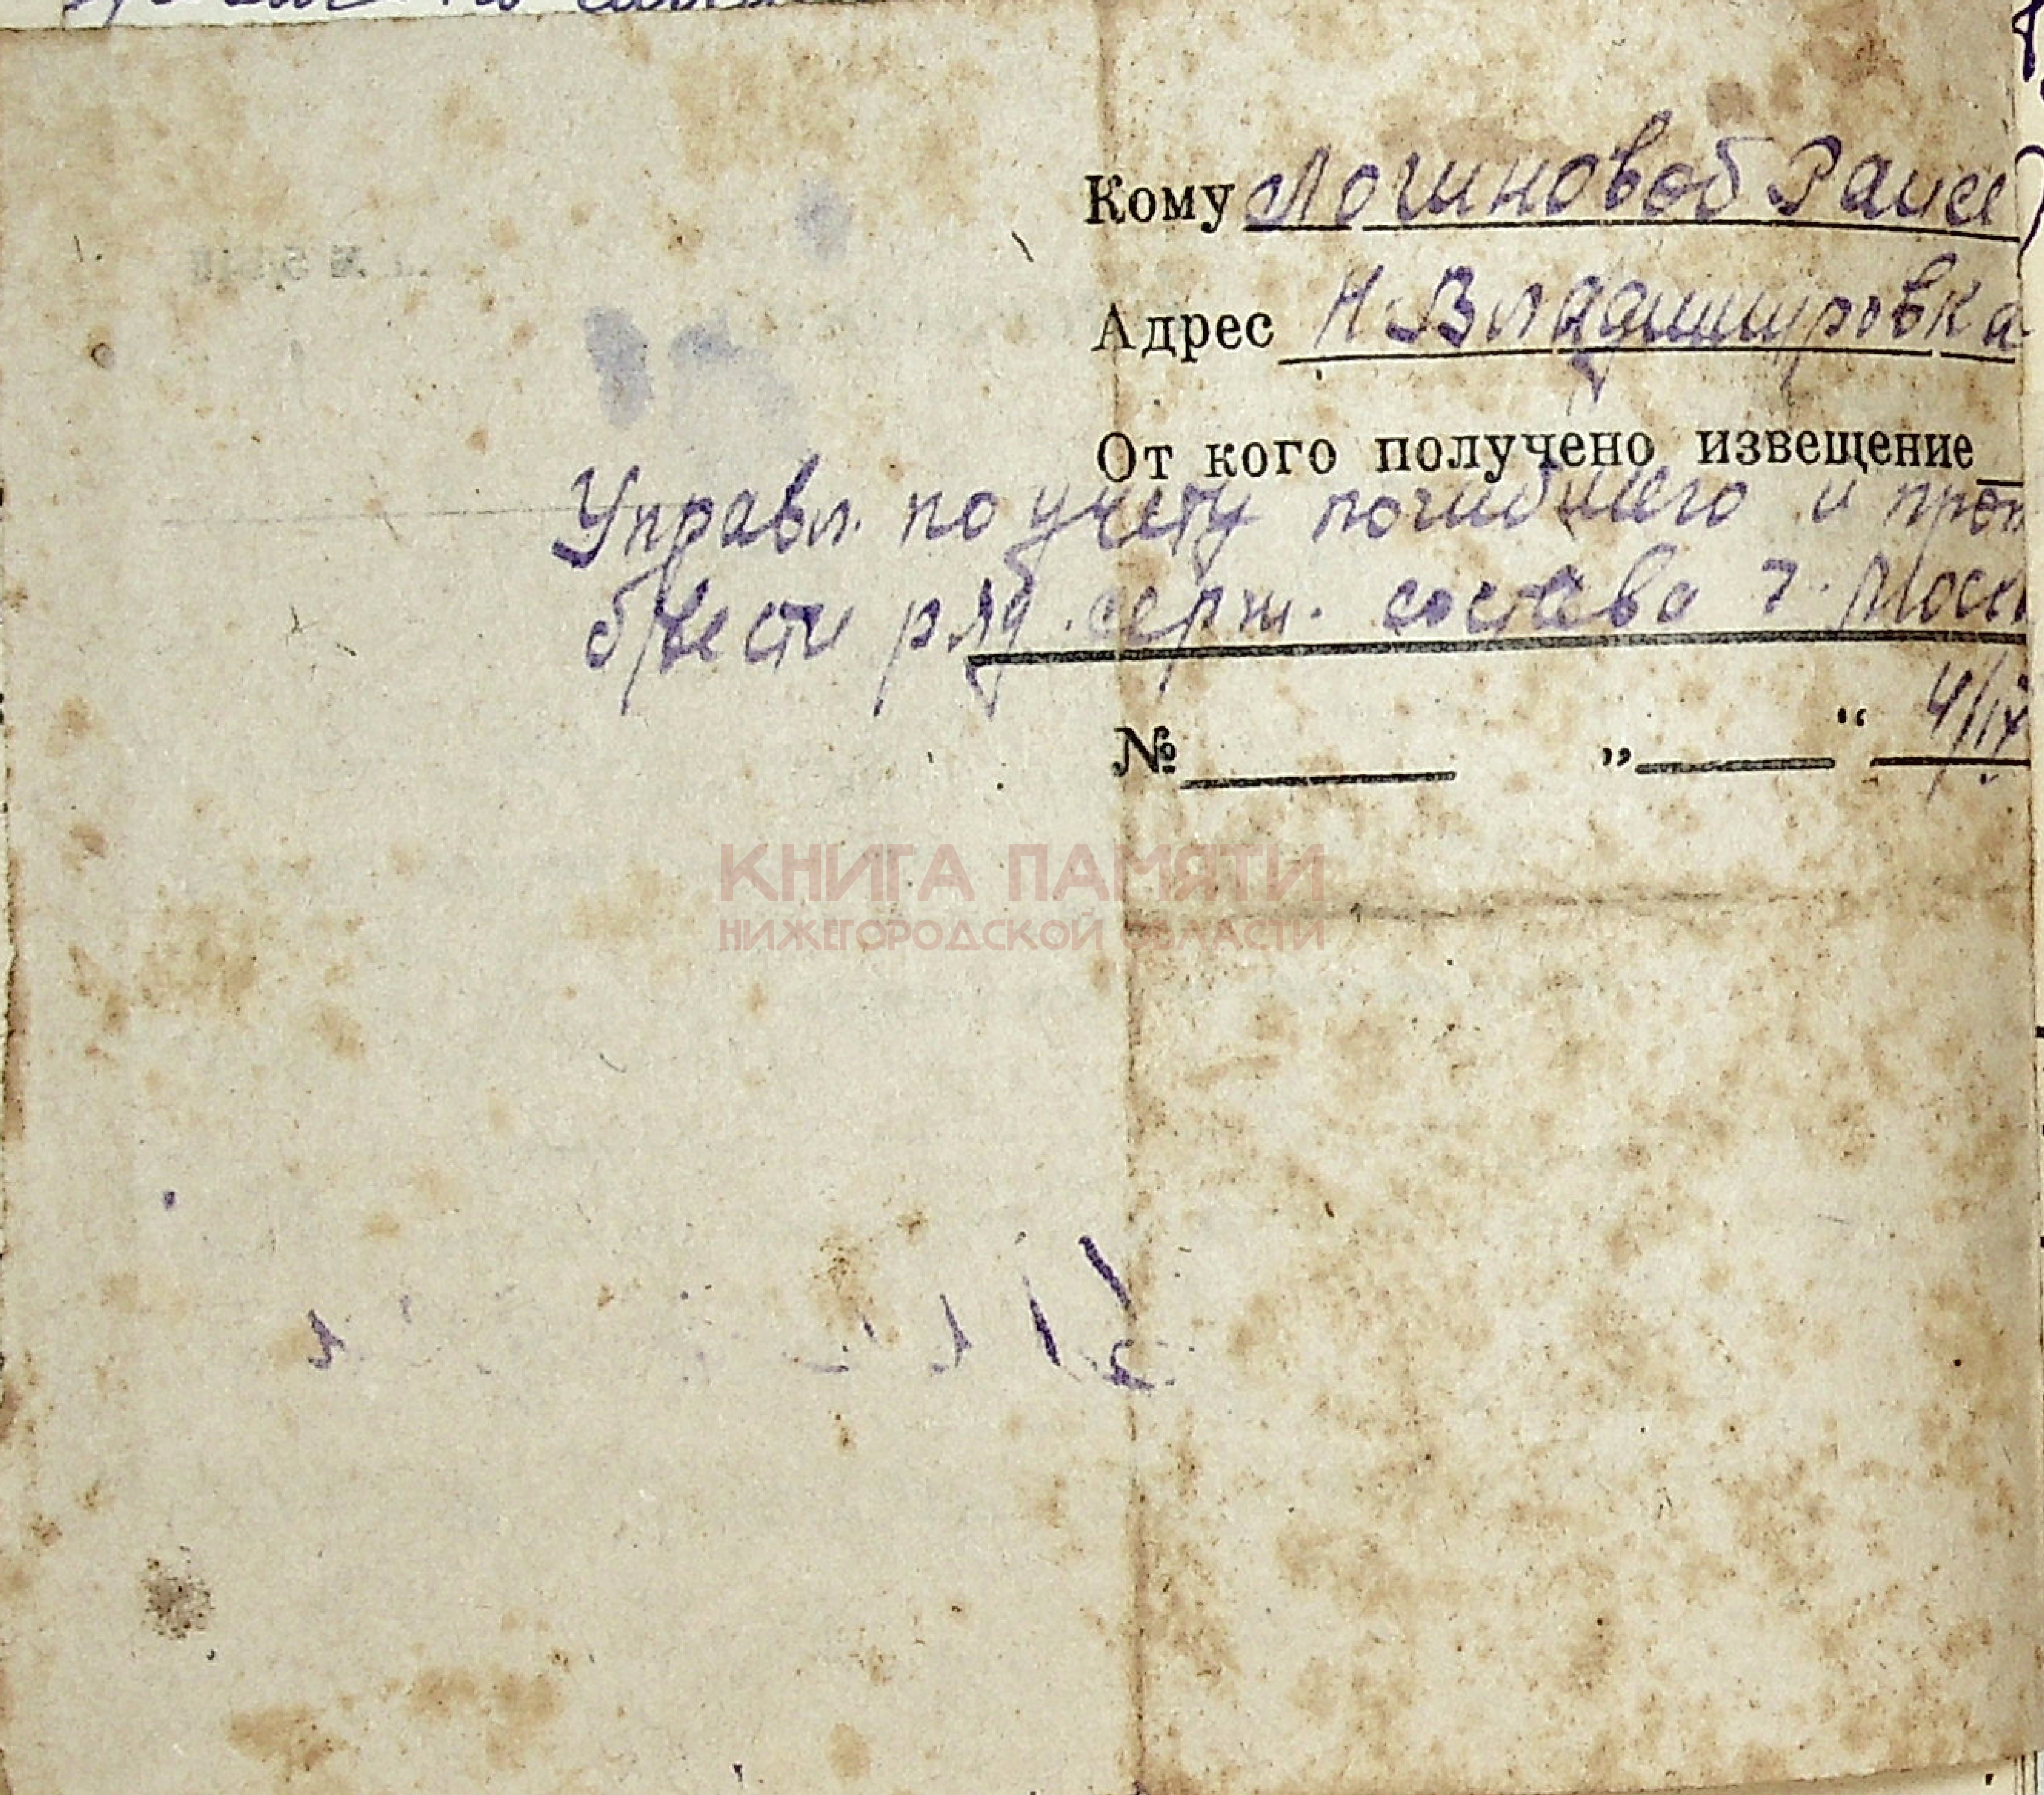 Кому Логиновой Раисе
Адрес Н Владимировка
От кого получено извещение
Управл. по учету погибшего и проп
б/вести ряд. серж. состава г. Моск
№ „ “ 4/IX
КНИГА ПАМЯТИ
НИЖЕГОРОДСКОЙ ОБЛАСТИ